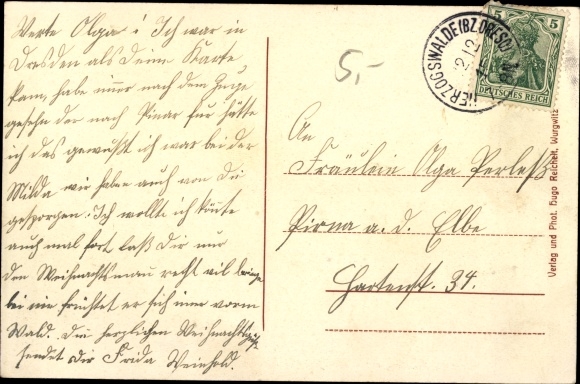 Werte Olga! Ich war in
Dresden als Deine Karte
kam, habe nach dem Zuge
gesehn der nach Pirna fur hätte
ich das gewußt ich war bei der
Milda wir haben auch von Dir
gesprochen. Ich wollte ich könte
auch mal fort laß Dir nur
den Weihnachtsman recht vil
bei früchtet er sich vorm
Wald. herzlichen
sendet dir Frida Weinhold.
5,-
HERZOGSWALDE (BZ. DRESD.)
5 5
DEUTSCHES REICH
An
Fräulein Olga Perleß
Pirna a. d. Elbe
Gartenst. 34.
Verlag und Phot. Hugo Reichelt, Wurgwitz